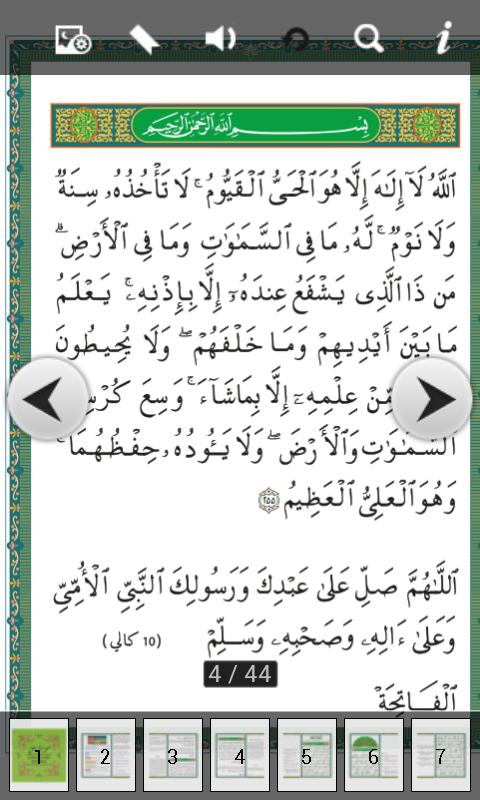 بِسْــــــمِ اللَّهِ الرَّحْمَٰنِ الرَّحِيمِ
اللَّهُ لَآ إِلَٰهَ إِلَّا هُوَ الْحَىُّ الْقَيُّومُ ۚ لَا تَأْخُذُهُۥ سِنَةٌ
وَلَا نَوْمٌ ۚ لَّهُۥ مَا فِى السَّمَٰوَٰتِ وَمَا فِى الْأَرْضِ ۗ
مَن ذَا الَّذِى يَشْفَعُ عِندَهُۥٓ إِلَّا بِإِذْنِهِۦ ۚ يَعْلَمُ
مَا بَيْنَ أَيْدِيهِمْ وَمَا خَلْفَهُمْ ۖ وَلَا يُحِيطُونَ
مِّنْ عِلْمِهِۦٓ إِلَّا بِمَا شَآءَ ۚ وَسِعَ كُرْسِ
السَّمَٰوَٰتِ وَالْأَرْضَ ۖ وَلَا يَـُٔودُهُۥ حِفْظُهُمَا ۚ
وَهُوَ الْعَلِىُّ الْعَظِيمُ ٢٥٥
اللَّهُمَّ صَلِّ عَلَىٰ عَبْدِكَ وَرَسُولِكَ النَّبِىِّ الْأُمِّىِّ
وَعَلَىٰ ءَالِهِۦ وَصَحْبِهِۦ وَسَــلِّمْ (10 كالي)
4 / 44
الْفَـاتِحَةْ
1 2 3 4 5 6 7